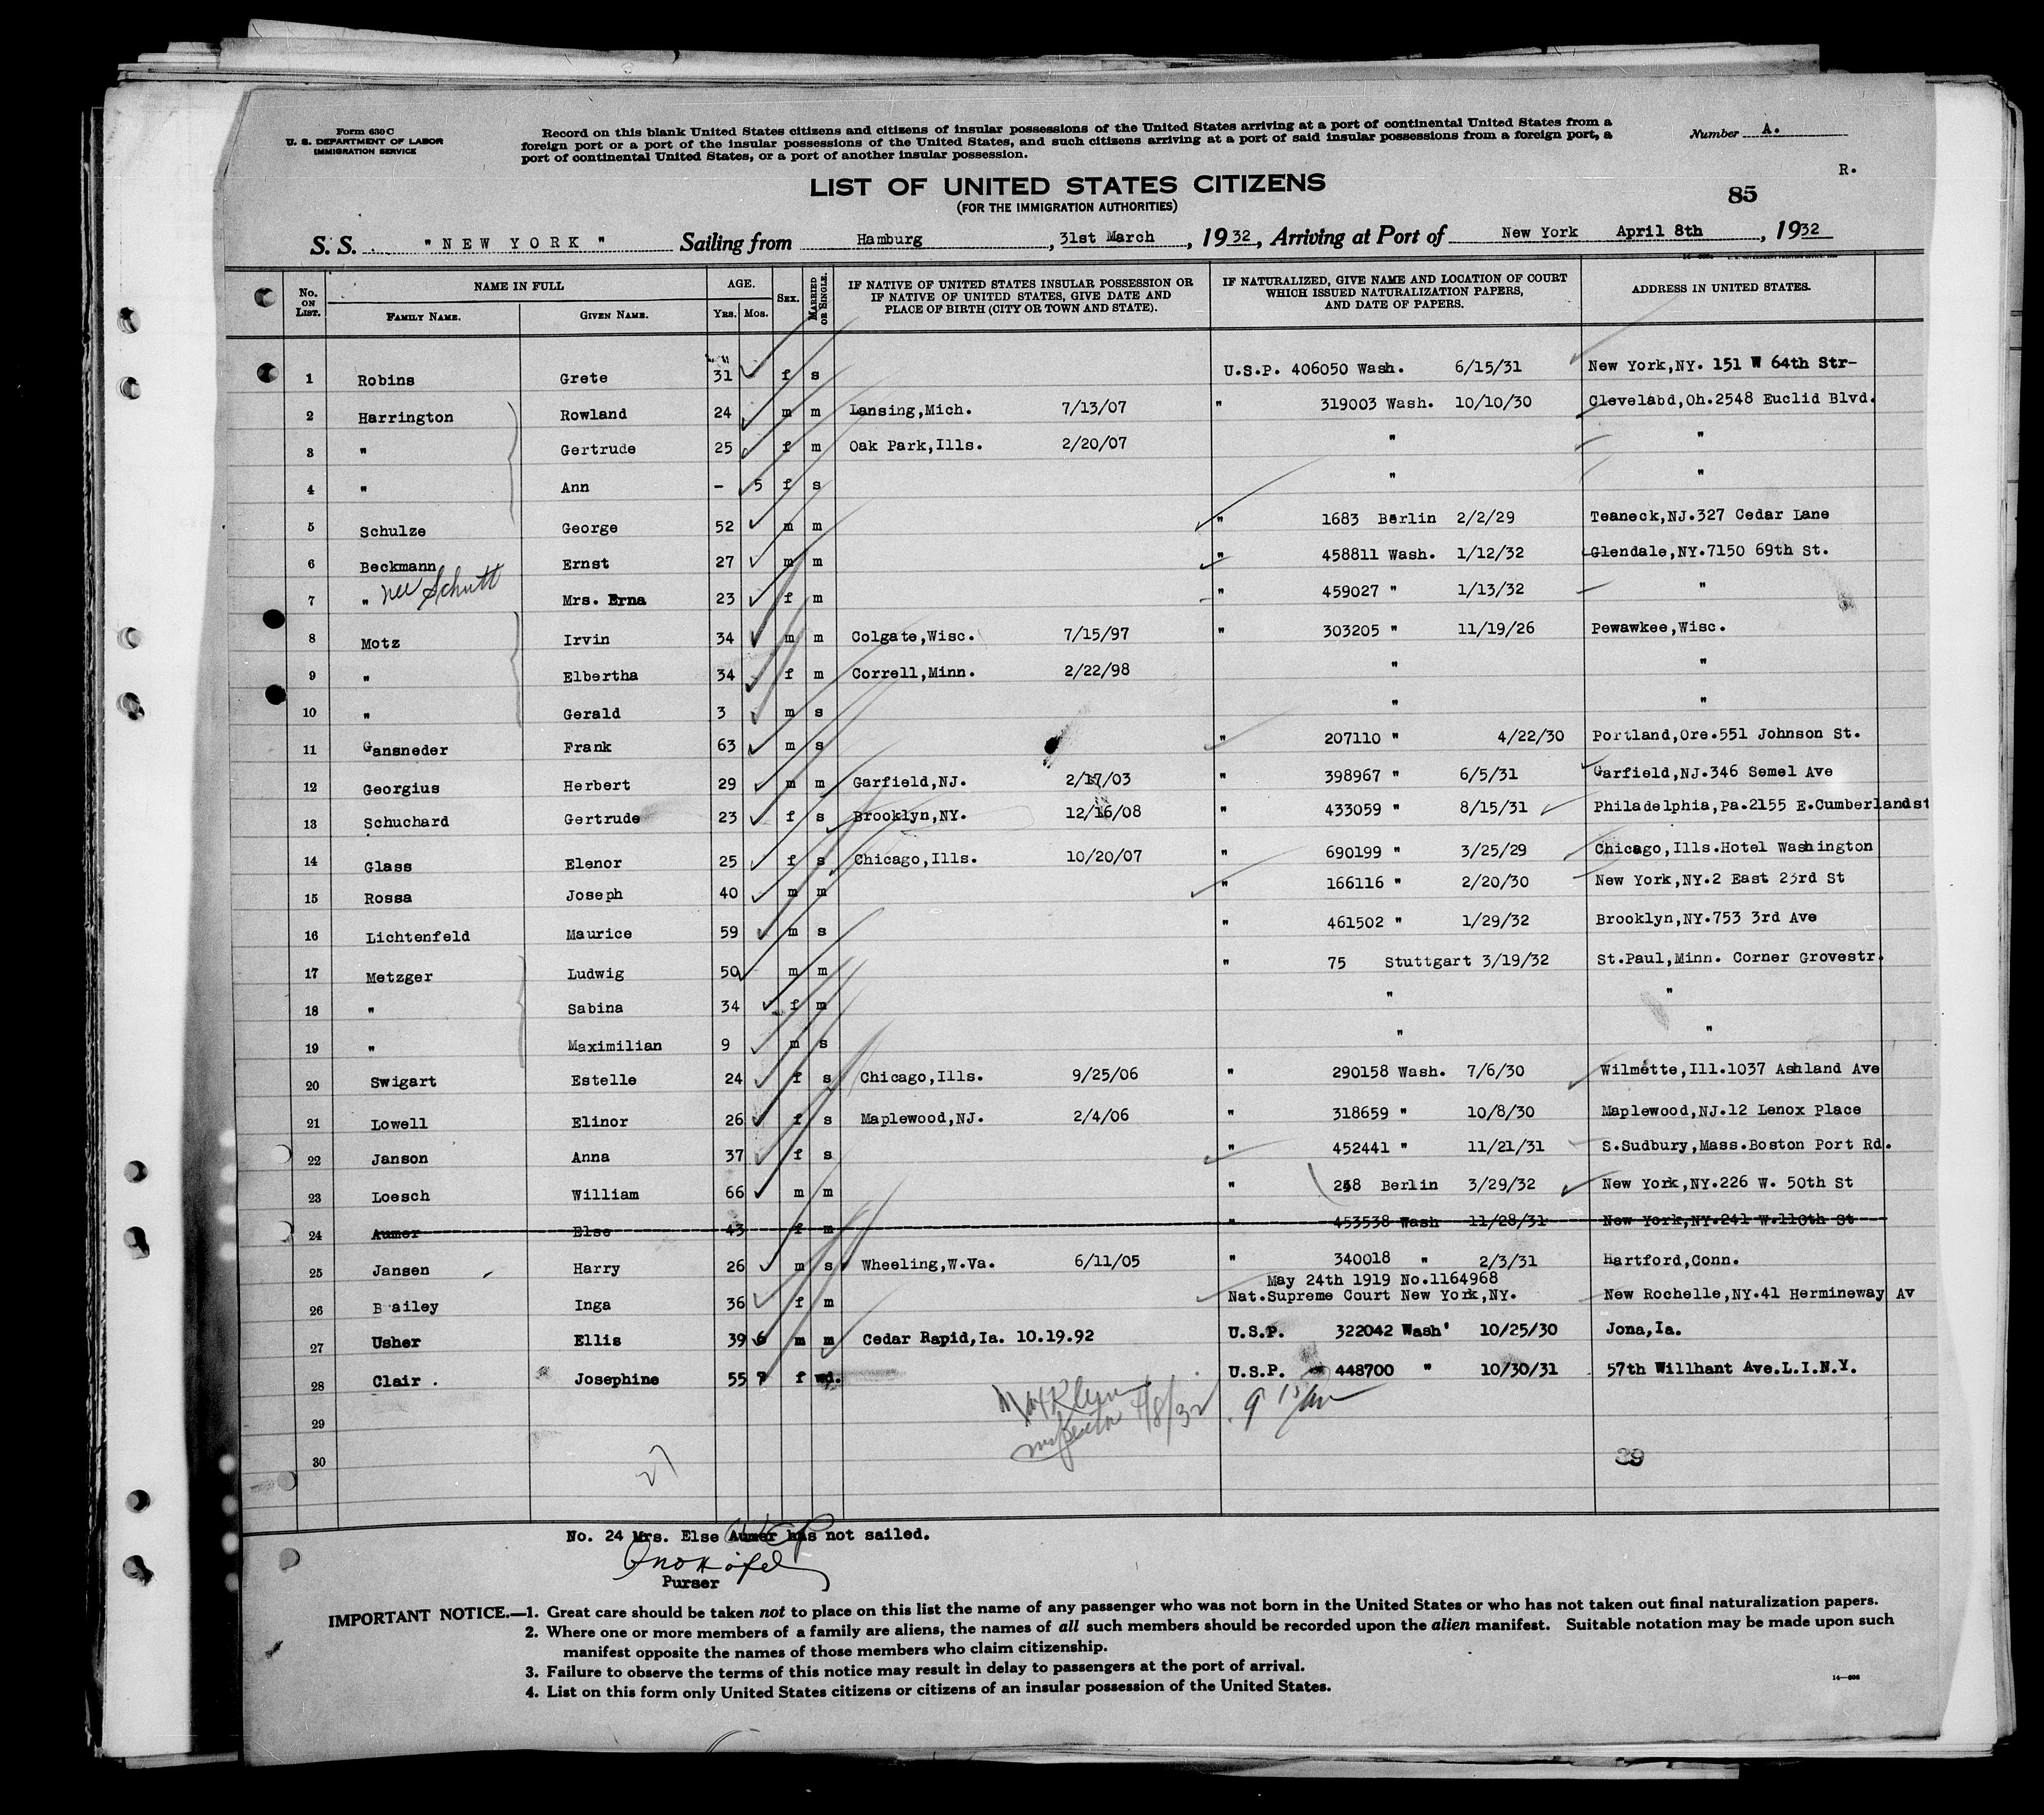 Form 630 C
U. S. DEPARTMENT OF LABOR
IMMIGRATION SERVICE
Record on this blank United States citizens and citizens of insular possessions of the United States arriving at a port of continental United States from a
foreign port or a port of the insular possessions of the United States, and such citizens arriving at a port of said insular possessions from a foreign port, a
port of continental United States, or a port of another insular possession.
Number A.
R.
LIST OF UNITED STATES CITIZENS
(FOR THE IMMIGRATION AUTHORITIES)
85
S. S. "NEW YORK" Sailing from Hamburg, 31st March, 1932, Arriving at Port of New York April 8th, 1932
No. ON LIST. NAME IN FULL FAMILY NAME. GIVEN NAME. AGE. Yrs. Mos. Sex. MARRIED OR SINGLE. IF NATIVE OF UNITED STATES INSULAR POSSESSION OR IF NATIVE OF UNITED STATES, GIVE DATE AND PLACE OF BIRTH (CITY OR TOWN AND STATE). IF NATURALIZED, GIVE NAME AND LOCATION OF COURT WHICH ISSUED NATURALIZATION PAPERS, AND DATE OF PAPERS. ADDRESS IN UNITED STATES.
1 Robins Grete 31 f s U.S.P. 406050 Wash. 6/15/31 New York,NY. 151 W 64th Str-
2 Harrington Rowland 24 m m Lansing,Mich. 7/13/07 " 319003 Wash. 10/10/30 Clevelabd,Oh.2548 Euclid Blvd.
3 " Gertrude 25 f m Oak Park,Ills. 2/20/07 " "
4 " Ann - 5 f s " "
5 Schulze George 52 m m " 1683 Berlin 2/2/29 Teaneck,NJ.327 Cedar Lane
6 Beckmann Ernst 27 m m " 458811 Wash. 1/12/32 Glendale,NY.7150 69th St.
7 " nee Schutt Mrs. Erna 23 f m " 459027 " 1/13/32 "
8 Motz Irvin 34 m m Colgate,Wisc. 7/15/97 " 303205 " 11/19/26 Pewawkee,Wisc.
9 " Elbertha 34 f m Correll,Minn. 2/22/98 " "
10 " Gerald 3 m s " "
11 Gansneder Frank 63 m s " 207110 " 4/22/30 Portland,Ore.551 Johnson St.
12 Georgius Herbert 29 m m Garfield,NJ. 2/17/03 " 398967 " 6/5/31 Garfield,NJ.346 Semel Ave
13 Schuchard Gertrude 23 f s Brooklyn,NY. 12/16/08 " 433059 " 8/15/31 Philadelphia,Pa.2155 E.Cumberlandst
14 Glass Elenor 25 f s Chicago,Ills. 10/20/07 " 690199 " 3/25/29 Chicago,Ills.Hotel Washington
15 Rossa Joseph 40 m m " 166116 " 2/20/30 New York,NY.2 East 23rd St
16 Lichtenfeld Maurice 59 m s " 461502 " 1/29/32 Brooklyn,NY.753 3rd Ave
17 Metzger Ludwig 50 m m " 75 Stuttgart 3/19/32 St.Paul,Minn. Corner Grovestr.
18 " Sabina 34 f m " "
19 " Maximilian 9 m s " "
20 Swigart Estelle 24 f s Chicago,Ills. 9/25/06 " 290158 Wash. 7/6/30 Wilmette,Ill.1037 Ashland Ave
21 Lowell Elinor 26 f s Maplewood,NJ. 2/4/06 " 318659 " 10/8/30 Maplewood,NJ.12 Lenox Place
22 Janson Anna 37 f s " 452441 " 11/21/31 S.Sudbury,Mass.Boston Port Rd.
23 Loesch William 66 m m " Berlin 3/29/32 New York,NY.226 W. 50th St
24 Aumer Else 43 f m " 453538 Wash 11/28/31 New York,NY.241 W.110th St
25 Jansen Harry 26 m s Wheeling,W.Va. 6/11/05 " 340018 " 2/3/31 Hartford,Conn.
May 24th 1919 No.1164968
26 Bailey Inga 36 f m Nat.Supreme Court New York,NY. New Rochelle,NY.41 Hermineway Av
27 Usher Ellis 39 6 m m Cedar Rapid,Ia. 10.19.92 U.S.P. 322042 Wash' 10/25/30 Jona,Ia.
28 Clair . Josephine 55 7 f wd. U.S.P. 448700 " 10/30/31 57th Willhant Ave.L.I.N.Y.
29
inspector 4/8/32
30
39
27
No. 24 Mrs. Else Aumer has not sailed.
Purser
IMPORTANT NOTICE.—1. Great care should be taken not to place on this list the name of any passenger who was not born in the United States or who has not taken out final naturalization papers.
2. Where one or more members of a family are aliens, the names of all such members should be recorded upon the alien manifest. Suitable notation may be made upon such
manifest opposite the names of those members who claim citizenship.
3. Failure to observe the terms of this notice may result in delay to passengers at the port of arrival.
4. List on this form only United States citizens or citizens of an insular possession of the United States.